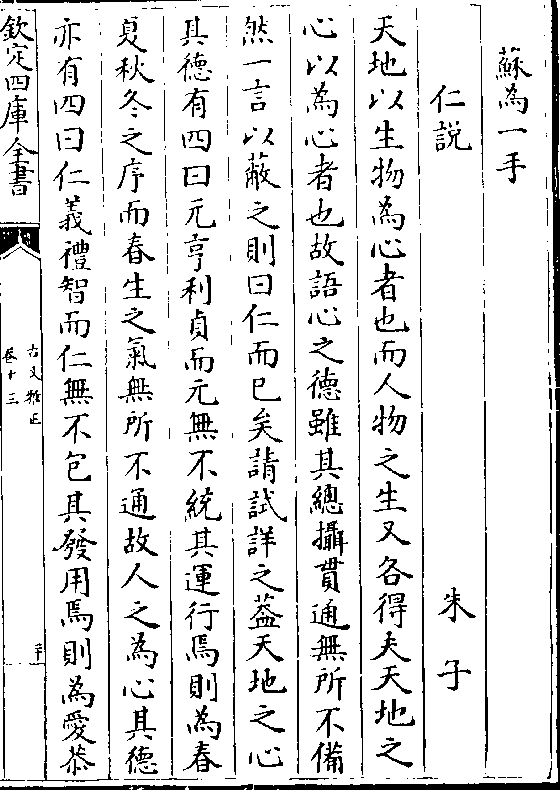 蘇為一手
仁説
朱子
天地以生物為心者也而人物之生又各得夫天地之
心以為心者也故語心之德雖其總攝貫通無所不備
然一言以蔽之則曰仁而已矣請試詳之葢天地之心
其德有四曰元亨利貞而元無不統其運行焉則為春
夏秋冬之序而春生之氣無所不通故人之為心其德
亦有四曰仁義禮智而仁無不包其發用焉則為愛恭
欽定四庫全書
古文雅正
卷十三